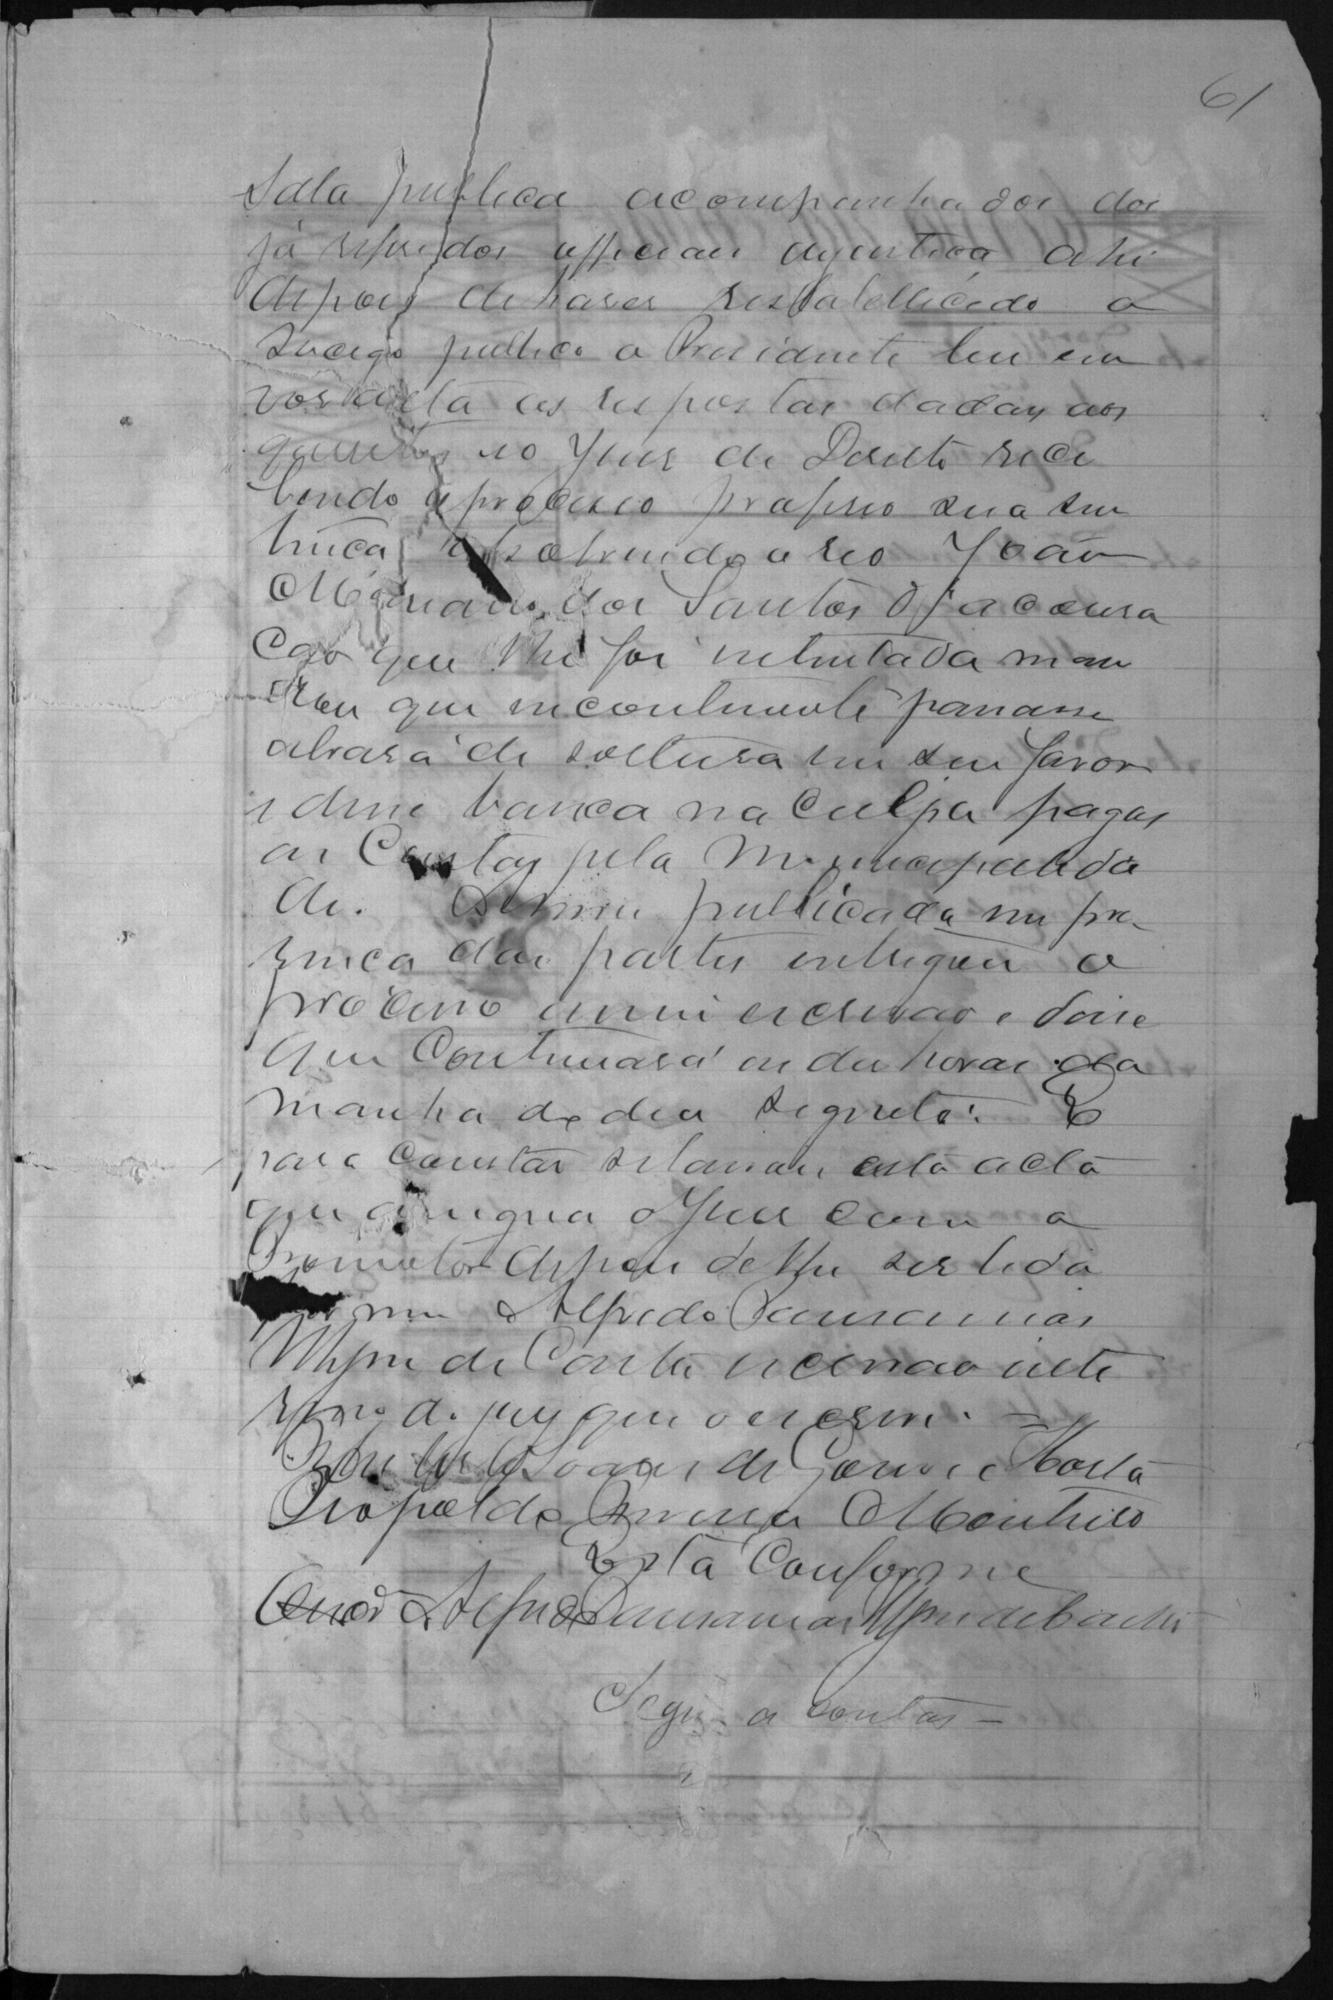 61
Sala publica acompanhados dos
já referidos officiaes ahi
depois de haver restabellecido o
socego publico o Presidente leu em
voz alta as respostas dadas aos
quesitos e o Juiz de Direito rece
bendo o processo sua sen
tença absolvendo o reo João
Mariano dos Santos da acousa
cão que lhe foi intentada man
dou que incontinente passasse
alvará de soltura em seu favor
e desse baixa na culpa pagas
as Custas pela Municipalida
de. publicada em pre
sença das partes entregou o
processo a mim escrivão e disse
que Continuará as dez horas da
manhã do dia seguinte. E
para constar se lavrou esta acta
que assigna o Juiz com o
Promotor depois de lhe ser lida
por mim Alfredo Pausanias
de Castro escrivão inte
rino do jury que o escrevi. =
Soares de Gouveia Horta
Leopoldo Monteiro
Está Conforme
Alfredo Pausanias
Segue a contas –